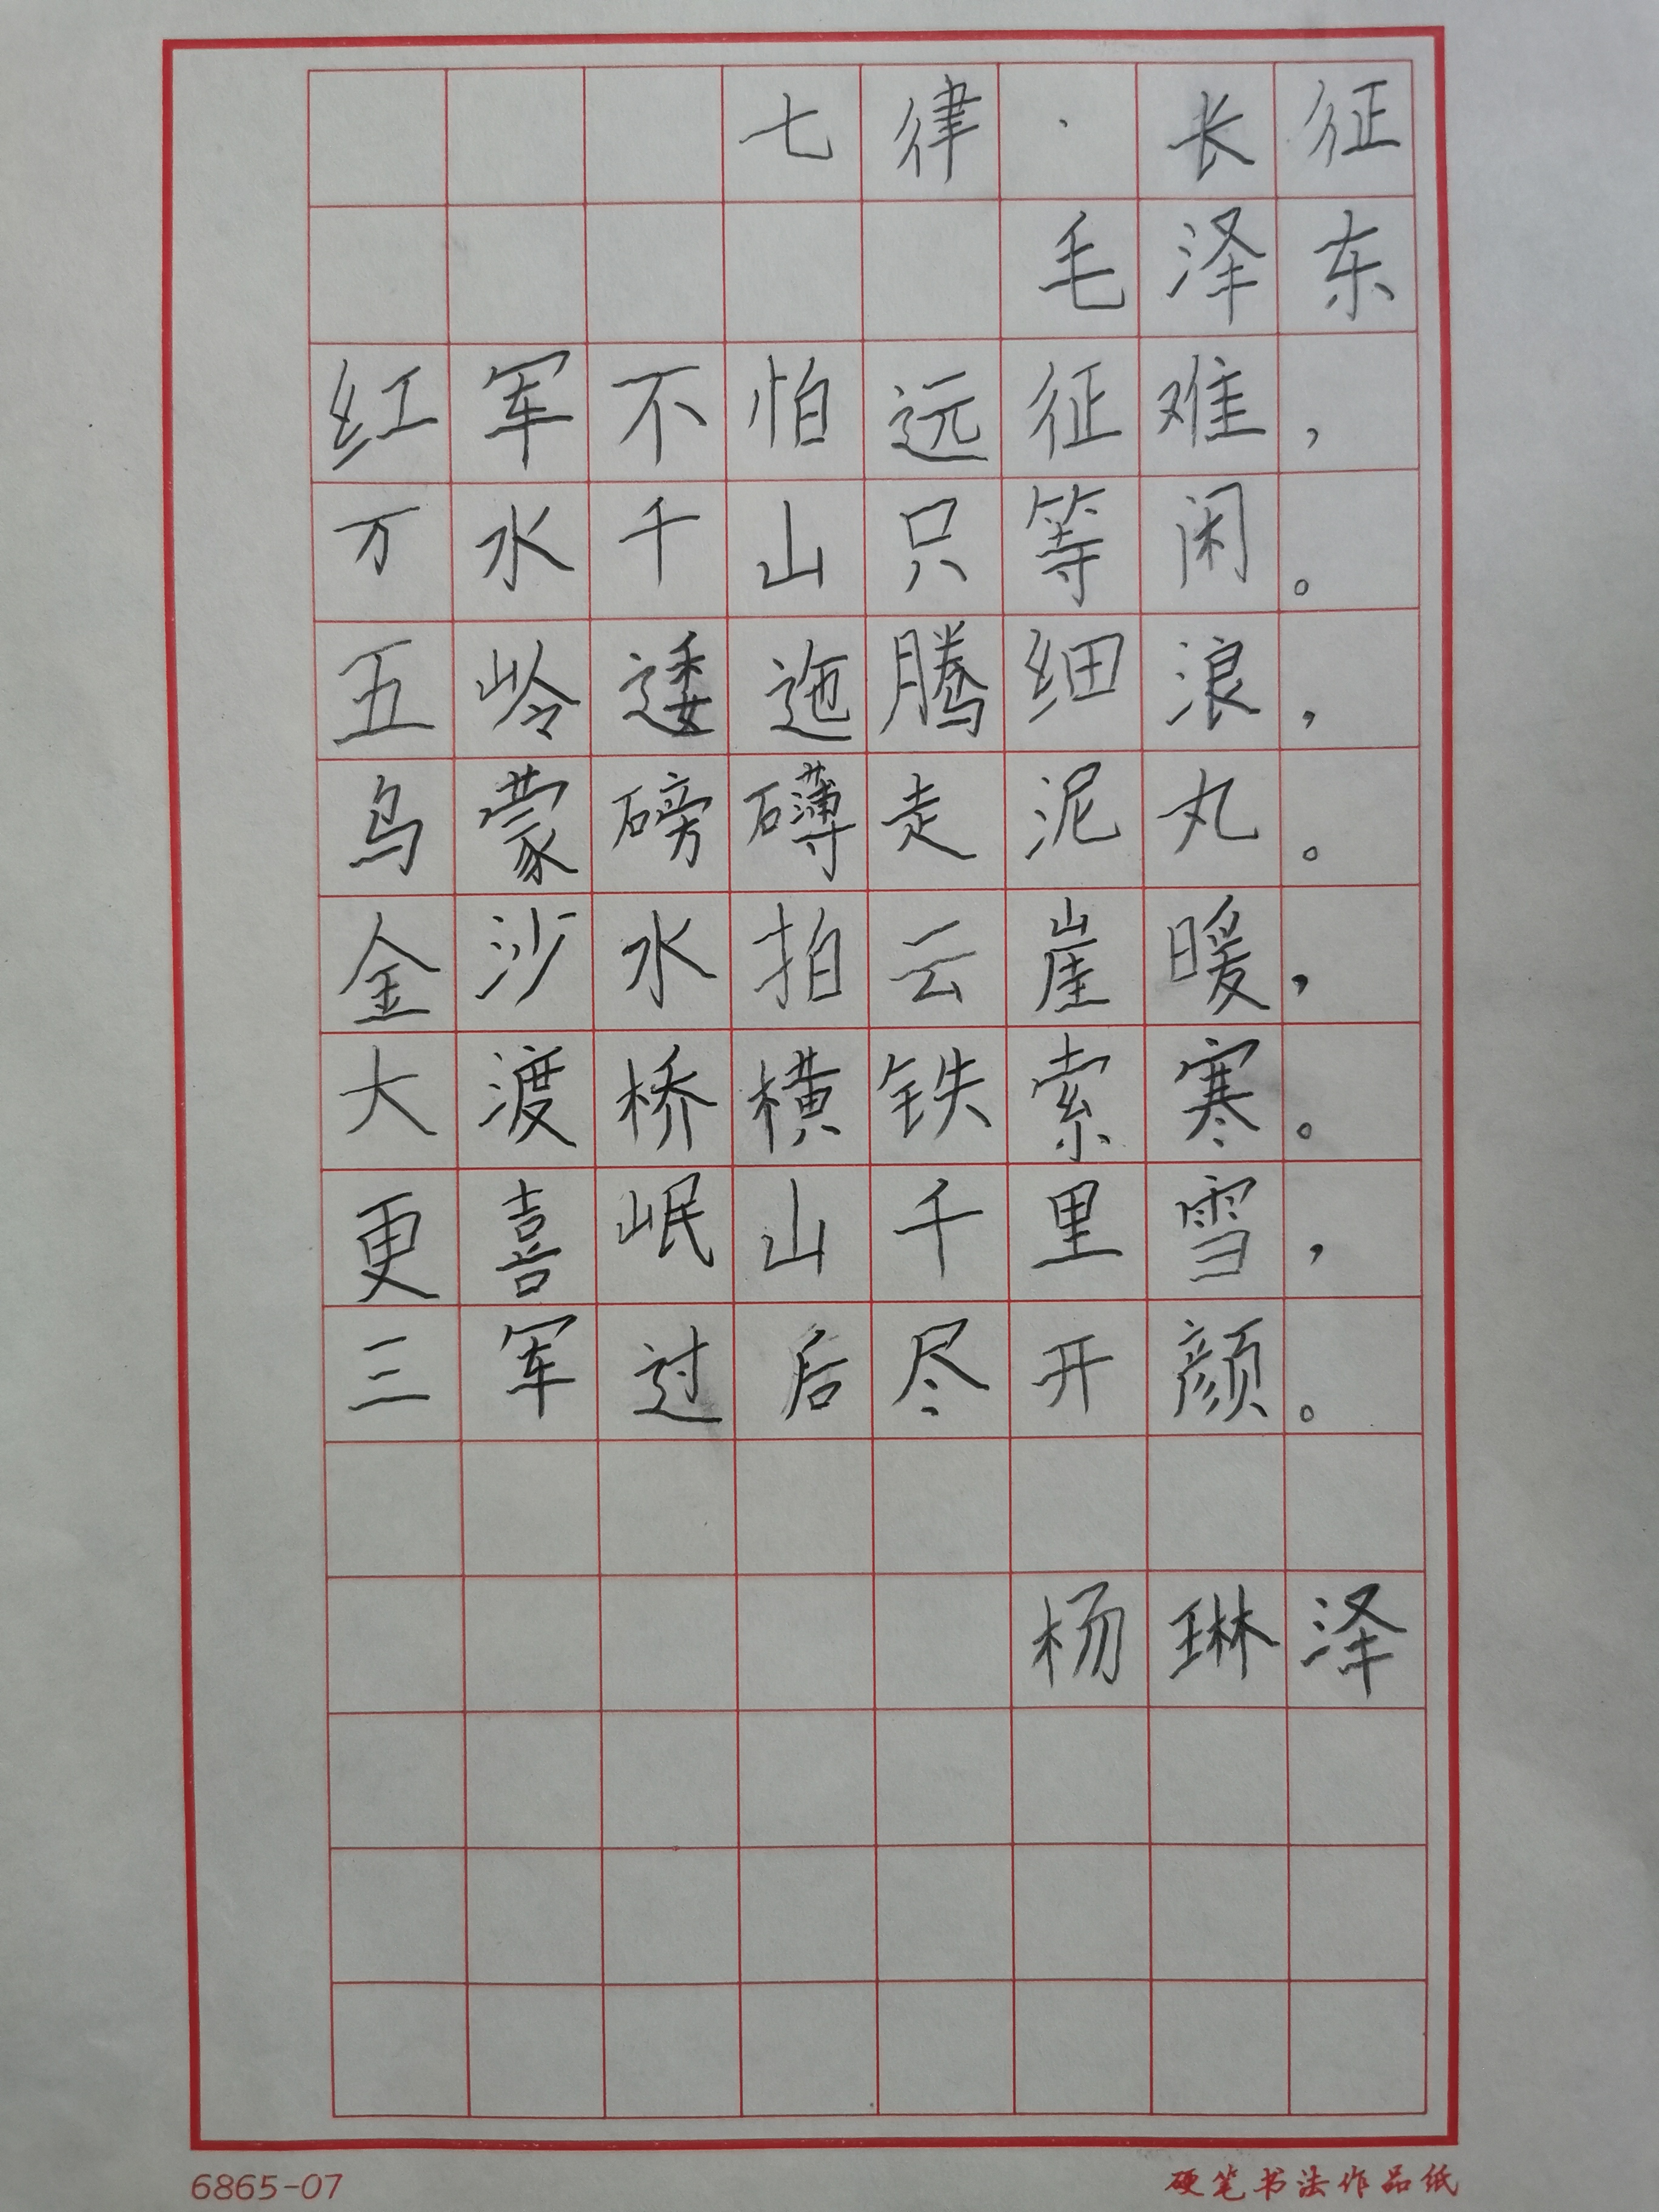 七律·长征
毛泽东
红军不怕远征难,
万水千山只等闲。
五岭逶迤腾细浪,
乌蒙磅礴走泥丸。
金沙水拍云崖暖,
大渡桥横铁索寒。
更喜岷山千里雪,
三军过后尽开颜。
杨琳泽
6865-07 硬笔书法作品纸